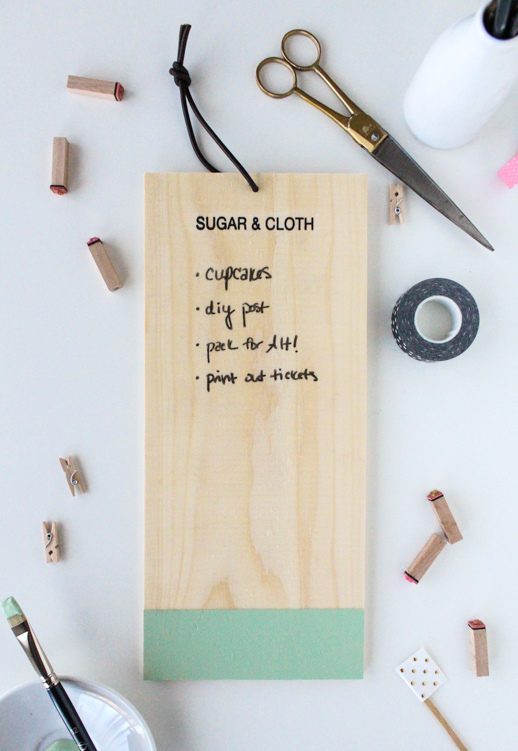 SUGAR & CLOTH
• cupcakes
• diy post
• pack for Alt!
• print out tickets